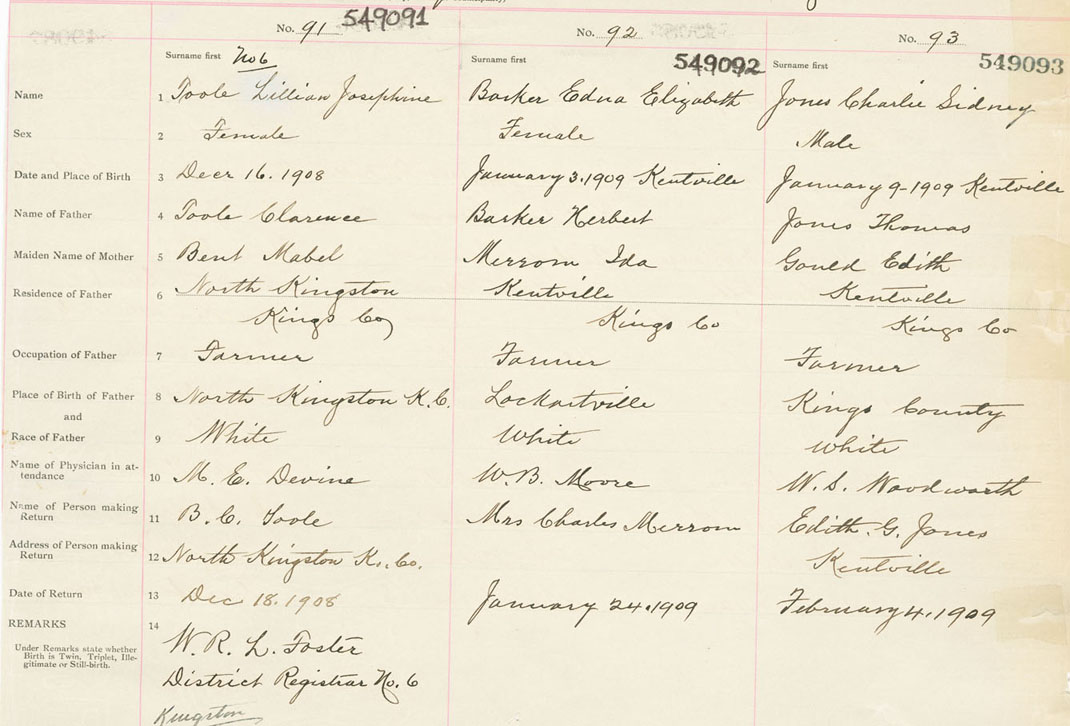 No. 91 549091
No. 92
No. 93
Surname first No 6
Surname first 549092
Surname first 549093
Name 1 Toole Lillian Josephine Barker Edna Elizabeth Jones Charlie Sidney
Sex 2 Female Female Male
Date and Place of Birth 3 Decr 16. 1908 January 3. 1909 Kentville January 9-1909 Kentville
Name of Father 4 Toole Clarence Barker Herbert Jones Thomas
Maiden Name of Mother 5 Bent Mabel Merrom Ida Gould Edith
Residence of Father 6 North Kingston Kentville Kentville
Kings Co Kings Co Kings Co
Occupation of Father 7 Farmer Farmer Farmer
Place of Birth of Father 8 North Kingston K. C. Lockartville Kings County
and
Race of Father 9 White White White
Name of Physician in at-
tendance 10 M. E. Devine W. B. Moore W. S. Woodworth
Name of Person making
Return 11 B. C. Toole Mrs Charles Merrom Edith. G. Jones
Address of Person making
Return 12 North Kingston K. Co. Kentville
Date of Return 13 Dec 18. 1908 January 24. 1909 February 4. 1909
REMARKS 14
Under Remarks state whether
Birth is Twin, Triplet, Ille-
gitimate or Still-birth.
W. R. L. Foster
District Registrar No. 6
Kingston